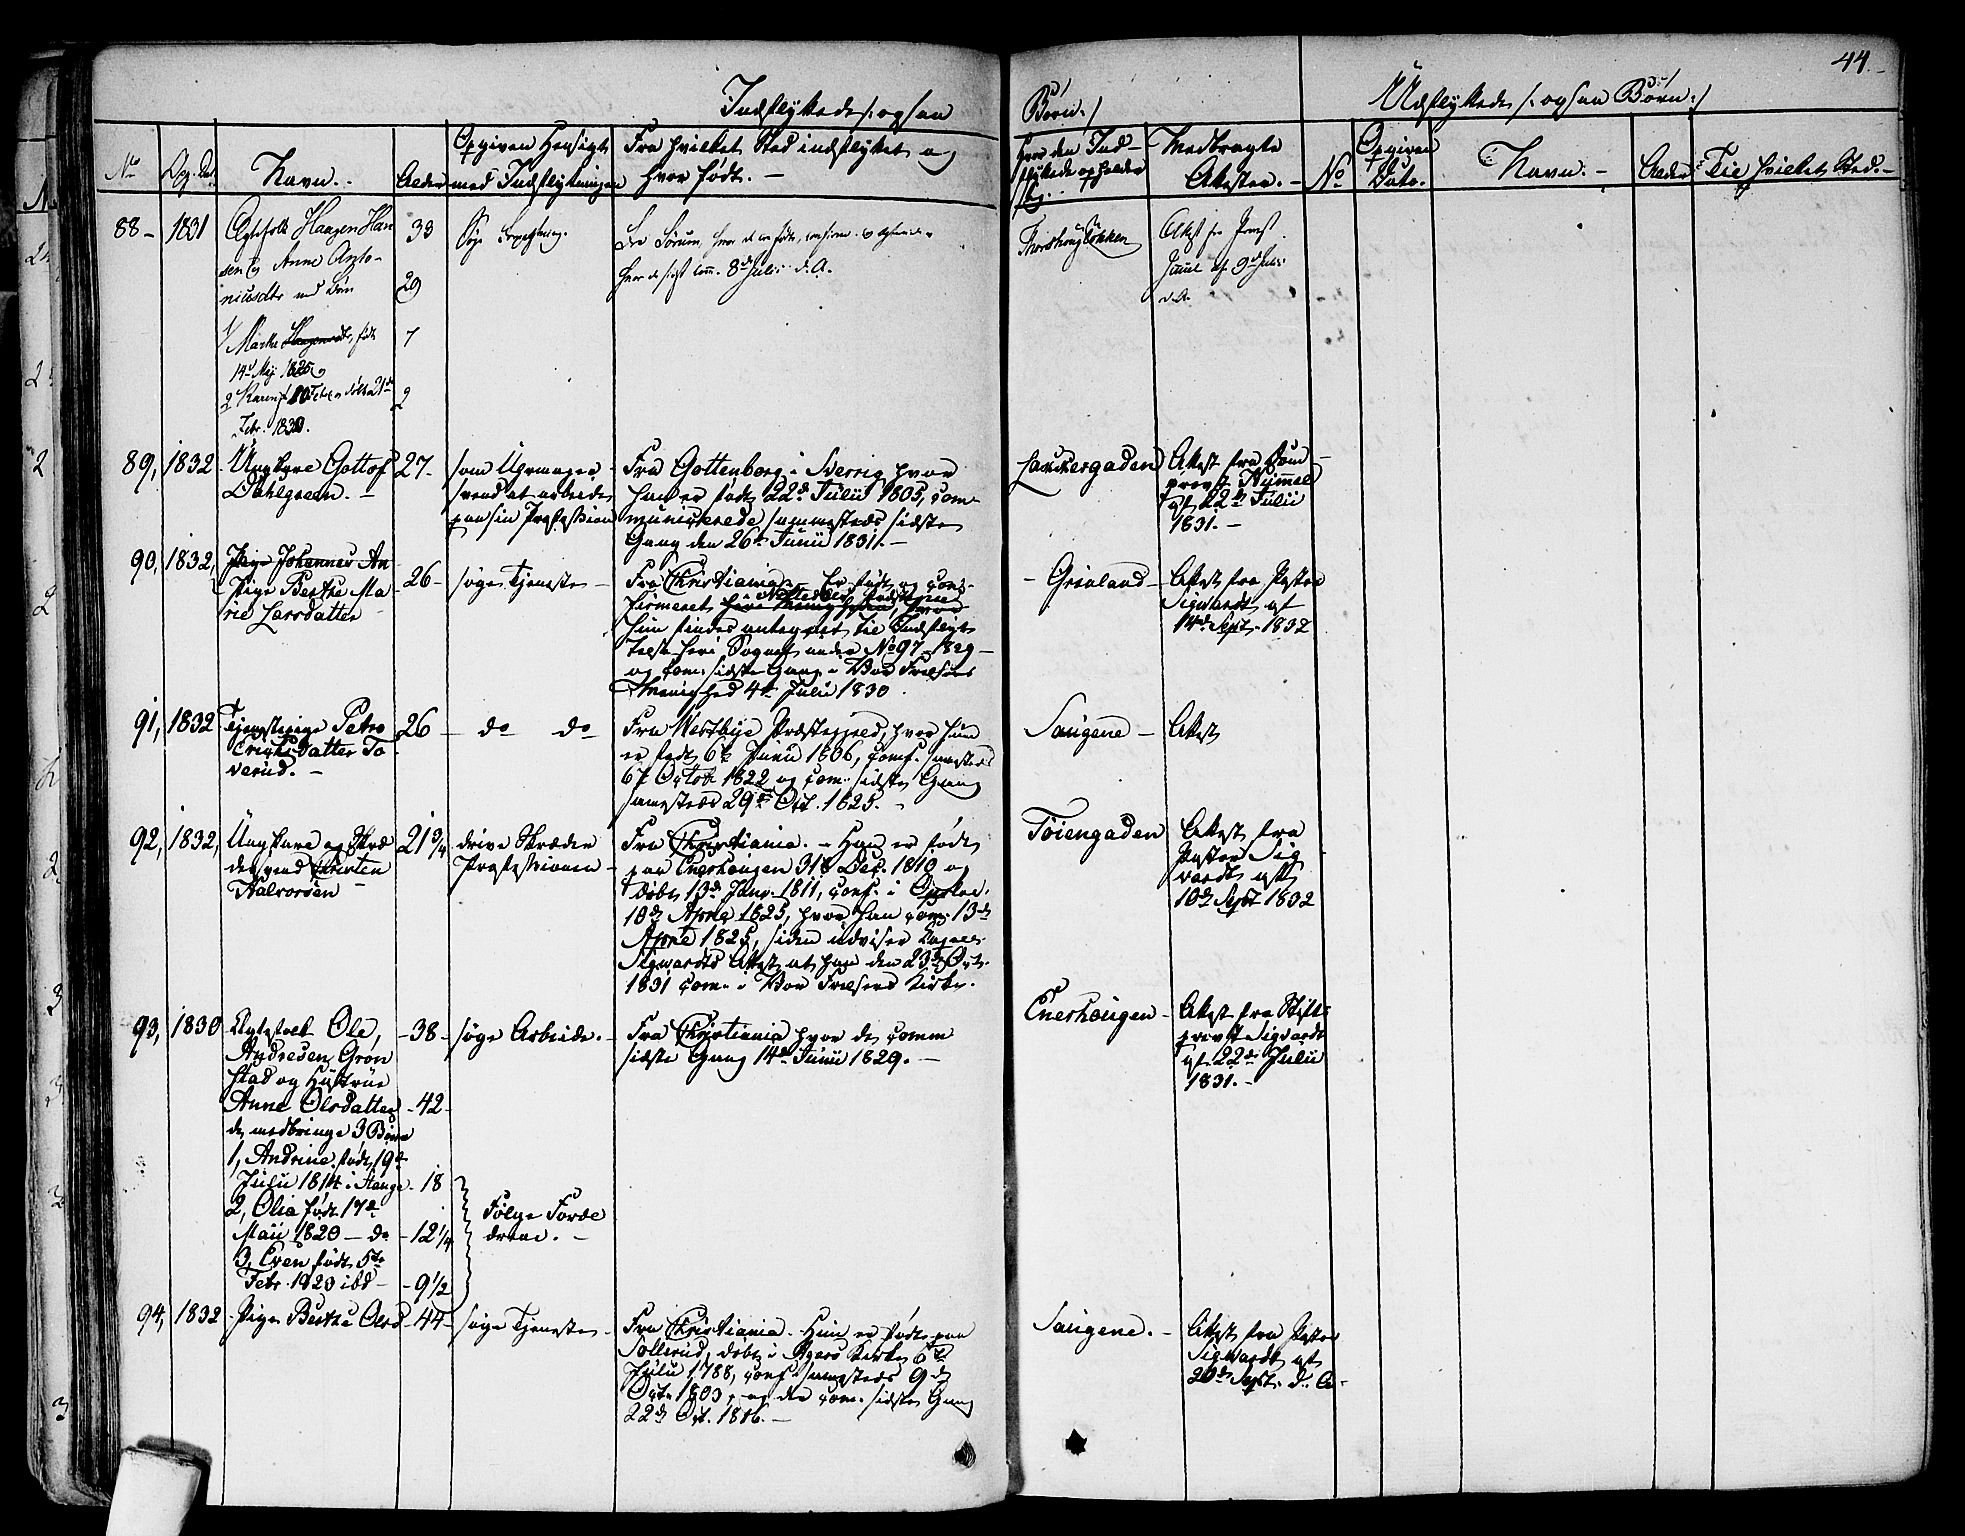 44.
Indflyttede /: ogsaa
Børn :/
Udflyttede /: ogsaa Børn :/
No
Navn.
Alder
Opgiven Hensigt
med Indflytningen
Fra hvilket Sted indflyttet og
hvor født. —
Hvor den Ind-
flyttede opholder
sig.
Medbragte
Attester. —
No
Opgiven
Dato.
Navn. —
Alder
Til hvilket Sted. —
88 - 1831 Ægtefolk Haagen Han
sen og Anne Anto-
niusdtr med Børn
1/ Marthe Haagensdt, født
14d Maj 1825 og
2 Karen f. døbt 21de
Febr. 1830.
33
29
7
2
Søge
Fra Sørum, hvor de ere fødte,
hvor de sidst com. 8d Juli d. A.
Attest fra Provst
af 9d Juli
d. A.
89, 1832 Ungkarl Gottof
Dahlgreen. —
27 -
som Uhrmager
svend at arbeide
paa sin Profession
Fra Gottenborg i Sverrig hvor
han er født 22d Julii 1805, com-
municerede sammesteds sidste
Gang den 26de Junii 1831. —
Lakkergaden
Attest fra Dom
provst Hummel
af 22de Julii
1831. —
90, 1832, Pige Johannes An
Pige Berthe Ma
rie Larsdatter
26 -
søge Tjeneste -
Fra Christiania. Er født og con-
firmeret
hun findes antegnet til Indflyt
telse her i Sognet under No 97 - 1829 —
og com. sidste Gang i Vor Frelsers
Menighed 4de Julii 1830.
- Grönland -
Attest fra Pastor
Sigwardt af
14de Sept. 1832
91, 1832 Tjenestepige Petro
Erichsdatter To
verud. —
26 -
do do
Fra Westbye Præstegjeld, hvor hun
er født 6te Junii 1806, conf. sammesteds
6te Octob 1822 og com. sidste Gang
sammesteds 29de Oct. 1825. -
Saugene -
Attest
92, 1832, Ungkarl og Skræ
dersvend Christen
Halvorsen
21 3/4
drive Skræder
Professionen -
Fra Christiania. - Han er født
paa Enerhougen 31te Dec. 1810 og
døbt 13de Janv. 1811, conf. i Opsloe
10de April 1825, hvor han com. 13de
April 1825, siden udviser Capell.
Sigwardts Attest at han den 23de Oct.
1831 com. i Vor Frelsers Kirke.
Töiengaden
Attest fra
Pastor Sig
wardt af
10de Sept 1832
93, 1830 Ægtefolk Ole
Andresen Gron
stad og Hustrue
Anne Olsdatter
de medbringe 3 Børn
1, Andrine født 19de
Julii 1814 i Stange
2, Olia født 17de
Maii 1820 - do
3, Even født 5te
Febr. 1823 ibd -
- 38 -
- 42 -
- 18
- 12 1/4
- 9 1/2
søge Arbeide. -
Følge Foræl
drene. -
Fra Christiania hvor de comm
sidste Gang 14de Junii 1829. —
Enerhougen -
Attest fra Stift-
provst Sigwardt
af 22de Julii
1831. -
94, 1832 Pige Berthe Olsd - 44 -
søge Tjeneste -
Fra Christiania. Hun er født paa
Sollerud, døbt i Agers Kirke 6te
Julii 1788, conf. sammesteds 9de
Oct. 1803, og der com. sidste Gang
22de Oct. 1816. —
Saugene. -
Attest fra Pastor
Sigwardt af
20de Sept. d. A. -